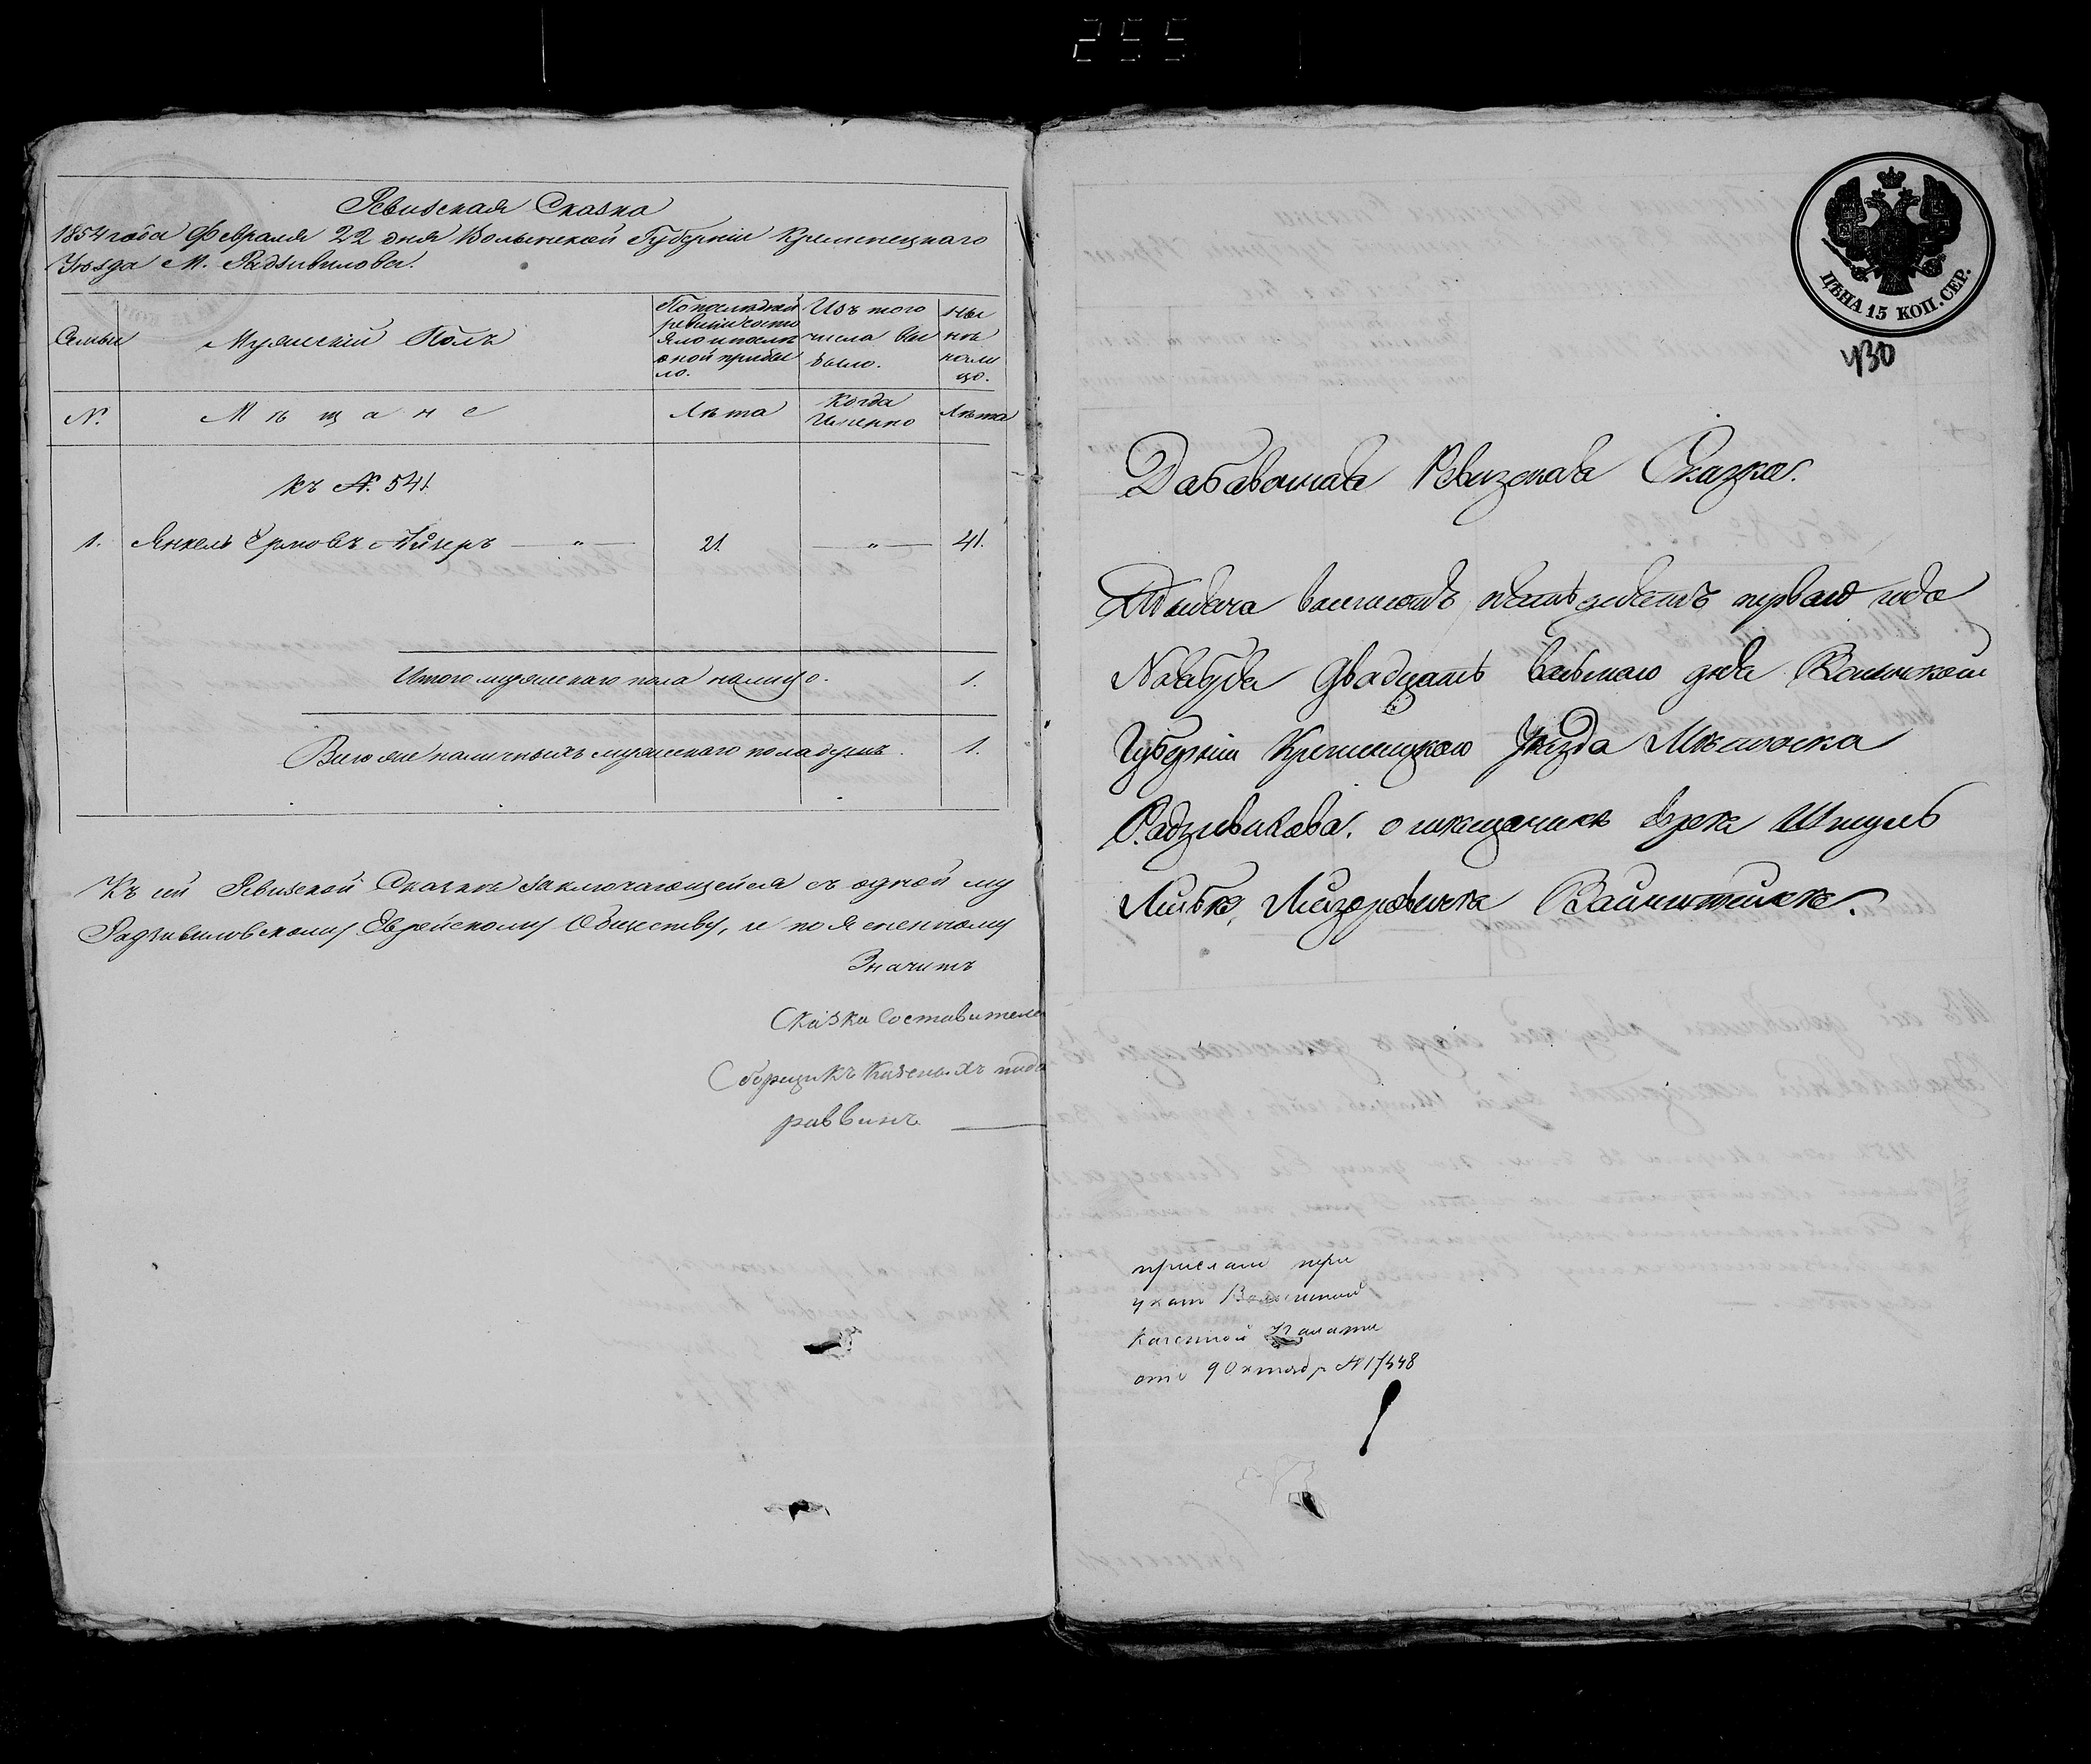 255
Ревизская Сказка
1854 года Февраля 22 дня Волынской Губерніи Кременецкаго
Уезда М. Радзивилова.
Семьи
Мужескій Полъ
По последней
ревизіи состо
яло и после
оной прибы
ло.
Изъ того
числа вы
было.
Ны
не
нали
цо.
№.
Мѣщане
Лѣта
Когда
Именно
Лѣта
къ №. 541.
1. Янкель Ермовъ 21. „ 41.
Итого мужескаго пола налицо. 1.
Всего же наличныхъ мужескаго пола душъ. 1.
Къ сей Ревизской Сказке заключающейся съ одной му
Радзивиловскому Еврейскому Обществу, и по Я
Значитъ
Сказка Составителя
Сборщикъ Казеныхъ пода
раввинъ
ЦѢНА 15 КОП. СЕР.
430
Ревизская Сказка.
Тысяча восемьсотъ пятьдесятъ первого года
Ноября двадцать восьмого дня Волынской
Губерніи Кременецкого Уезда Мѣстечка
Радзивилова. о мещанине еврея Шмуль
Лейбе, Вайнштейне.
прислан при
указе Волынской
Казенной Палаты
отъ 9 Октябр №17448